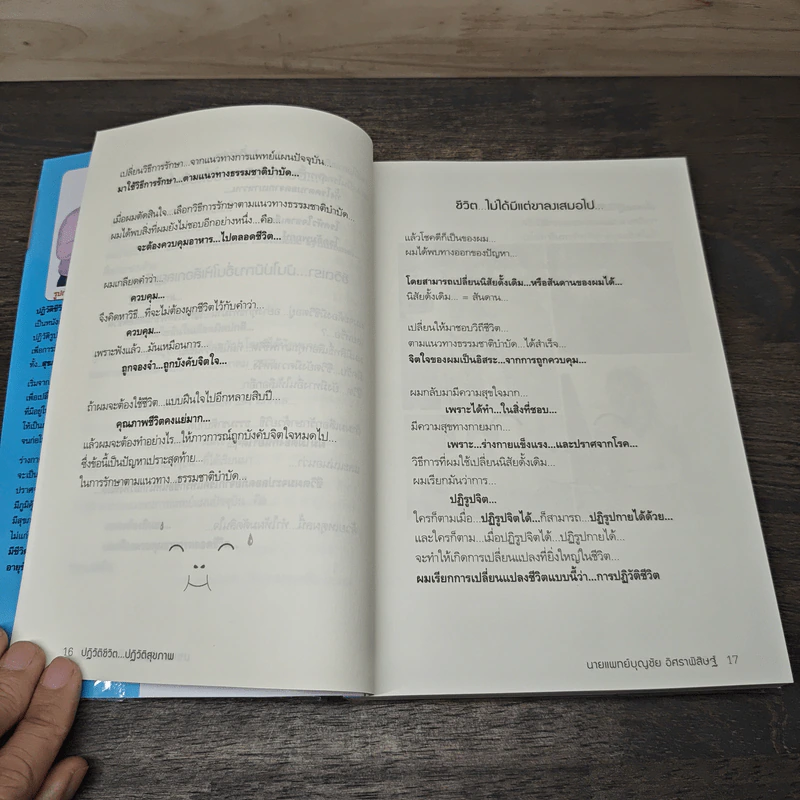 เปลี่ยนวิธีการรักษา...จากแนวทางการแพทย์แผนปัจจุบัน...
มาใช้วิธีการรักษา...ตามแนวทางธรรมชาติบำบัด...
เมื่อผมตัดสินใจ...เลือกวิธีการรักษาตามแนวทางธรรมชาติบำบัด...
ผมได้พบสิ่งที่ผมยังไม่ชอบอีกอย่างหนึ่ง...คือ...
จะต้องควบคุมอาหาร...ไปตลอดชีวิต...
ผมเกลียดคำว่า
ควบคุม...
จึงคิดหาวิธี...ที่จะไม่ต้องผูกชีวิตไว้กับคำว่า...
ควบคุม...
เพราะฟังแล้ว...มันเหมือนการ...
ถูกจองจำ...ถูกบังคับจิตใจ...
ถ้าผมจะต้องใช้ชีวิต...แบบฝืนใจไปอีกหลายสิบปี...
คุณภาพชีวิตคงแย่มาก...
แล้วผมจะต้องทำอย่างไร...ให้ภาวการณ์ถูกบังคับจิตใจหมดไป...
ซึ่งข้อนี้เป็นปัญหาเปราะสุดท้าย...
ในการรักษาตามแนวทาง...ธรรมชาติบำบัด...
16 ปฏิวัติชีวิต...ปฏิวัติสุขภาพ
ชีวิต...ไม่ได้มีแต่ขาลงเสมอไป...
แล้วโชคดีก็เป็นของผม...
ผมได้พบทางออกของปัญหา...
โดยสามารถเปลี่ยนนิสัยดั้งเดิม...หรือสันดานของผมได้...
นิสัยดั้งเดิม... = สันดาน...
เปลี่ยนให้มาชอบวิถีชีวิต...
ตามแนวทางธรรมชาติบำบัด...ได้สำเร็จ...
จิตใจของผมเป็นอิสระ...จากการถูกควบคุม...
ผมกลับมามีความสุขใจมาก...
เพราะได้ทำ...ในสิ่งที่ชอบ...
มีความสุขทางกายมาก...
เพราะ...ร่างกายแข็งแรง...และปราศจากโรค...
วิธีการที่ผมใช้เปลี่ยนนิสัยดั้งเดิม...
ผมเรียกมันว่าการ...
ปฏิรูปจิต...
ใครก็ตามเมื่อ...ปฏิรูปจิตได้...ก็สามารถ...ปฏิรูปกายได้ด้วย...
และใครก็ตาม...เมื่อปฏิรูปจิตได้...ปฏิรูปกายได้...
จะทำให้เกิดการเปลี่ยนแปลงที่ยิ่งใหญ่ในชีวิต...
ผมเรียกการเปลี่ยนแปลงชีวิตแบบนี้ว่า...การปฏิวัติชีวิต
นายแพทย์บุญชัย อิศราพิสิษฐ์ 17